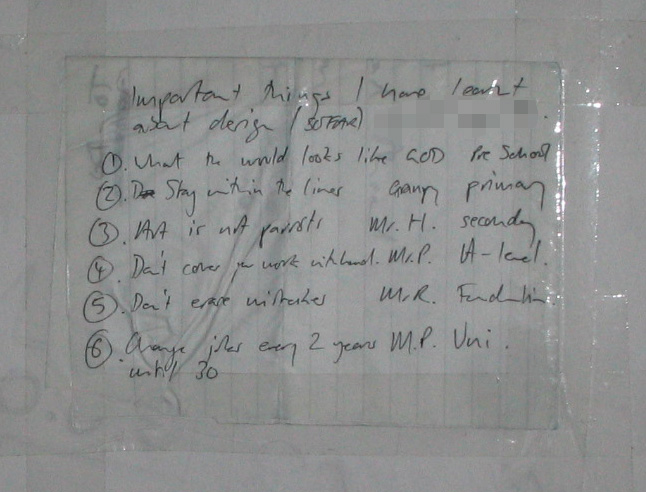 Important things I have learnt
about design (SO FAR) .
①. What the world looks like GOD Pre School
②. Stay within the lines Granny primary
③. Art is not parrots Mr. H. secondary
④. Don't cover your work with hand. Mr. P. A-level.
⑤. Don't erase mistakes Mr R. Foundation.
⑥. Change jobs every 2 years M.P. Uni.
until 30